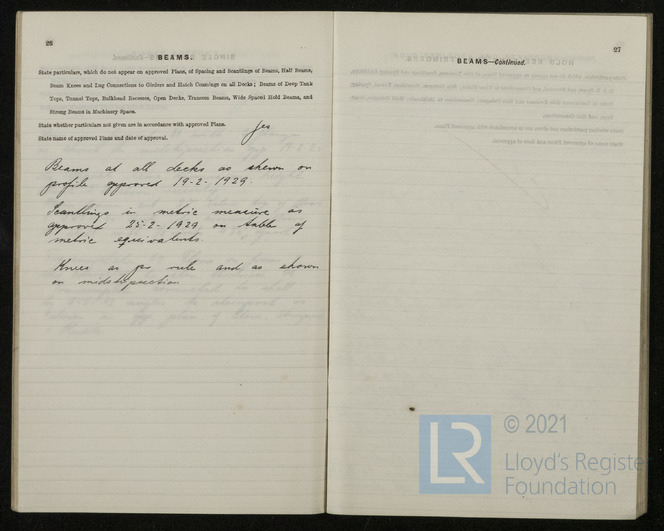 26
BEAMS.
State particulars, which do not appear on approved Plans, of Spacing and Scantlings of Beams, Half Beams,
Beam Knees and Lug Connections to Girders and Hatch Coamings on all Decks; Beams of Deep Tank
Tops, Tunnel Tops, Bulkhead Recesses, Open Decks, Transom Beams, Wide Spaced Hold Beams, and
Strong Beams in Machinery Space.
State whether particulars not given are in accordance with approved Plans. Yes
State name of approved Plans and date of approval.
Beams at all decks as shewn on
profile approved 19-2-1929.
Scantlings in metric measure as
approved 25-2-1929 on table of
metric equivalents.
Knees as per rule and as shown
on midship section
27
BEAMS—Continued.
LR
© 2021
Lloyd's Register
Foundation